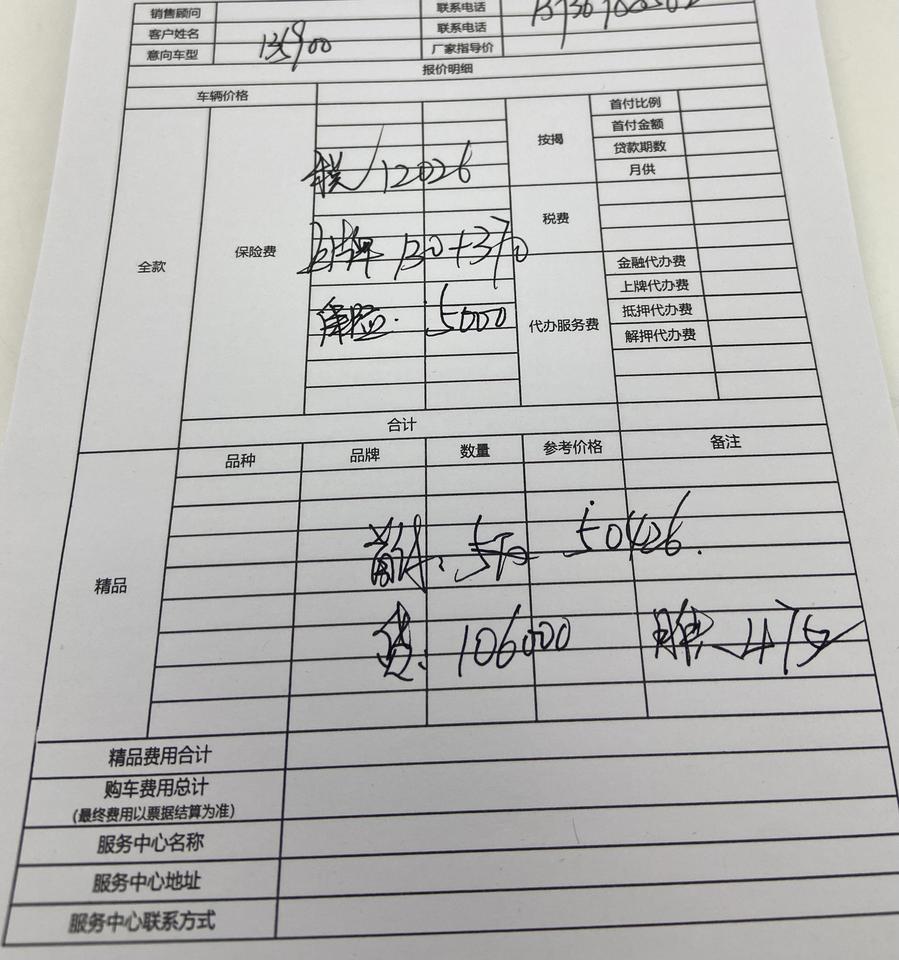 销售顾问 联系电话
客户姓名 联系电话
意向车型 135900 厂家指导价
报价明细
车辆价格
全款 保险费 按揭 首付比例
首付金额
贷款期数
月供
税 12026
税费
上牌 130+370
金融代办费
上牌代办费
保险: 5000 代办服务费 抵押代办费
解押代办费
合计
精品 品种 品牌 数量 参考价格 备注
首付: 50426.
贷: 106000 月供 475
精品费用合计
购车费用总计
(最终费用以票据结算为准)
服务中心名称
服务中心地址
服务中心联系方式